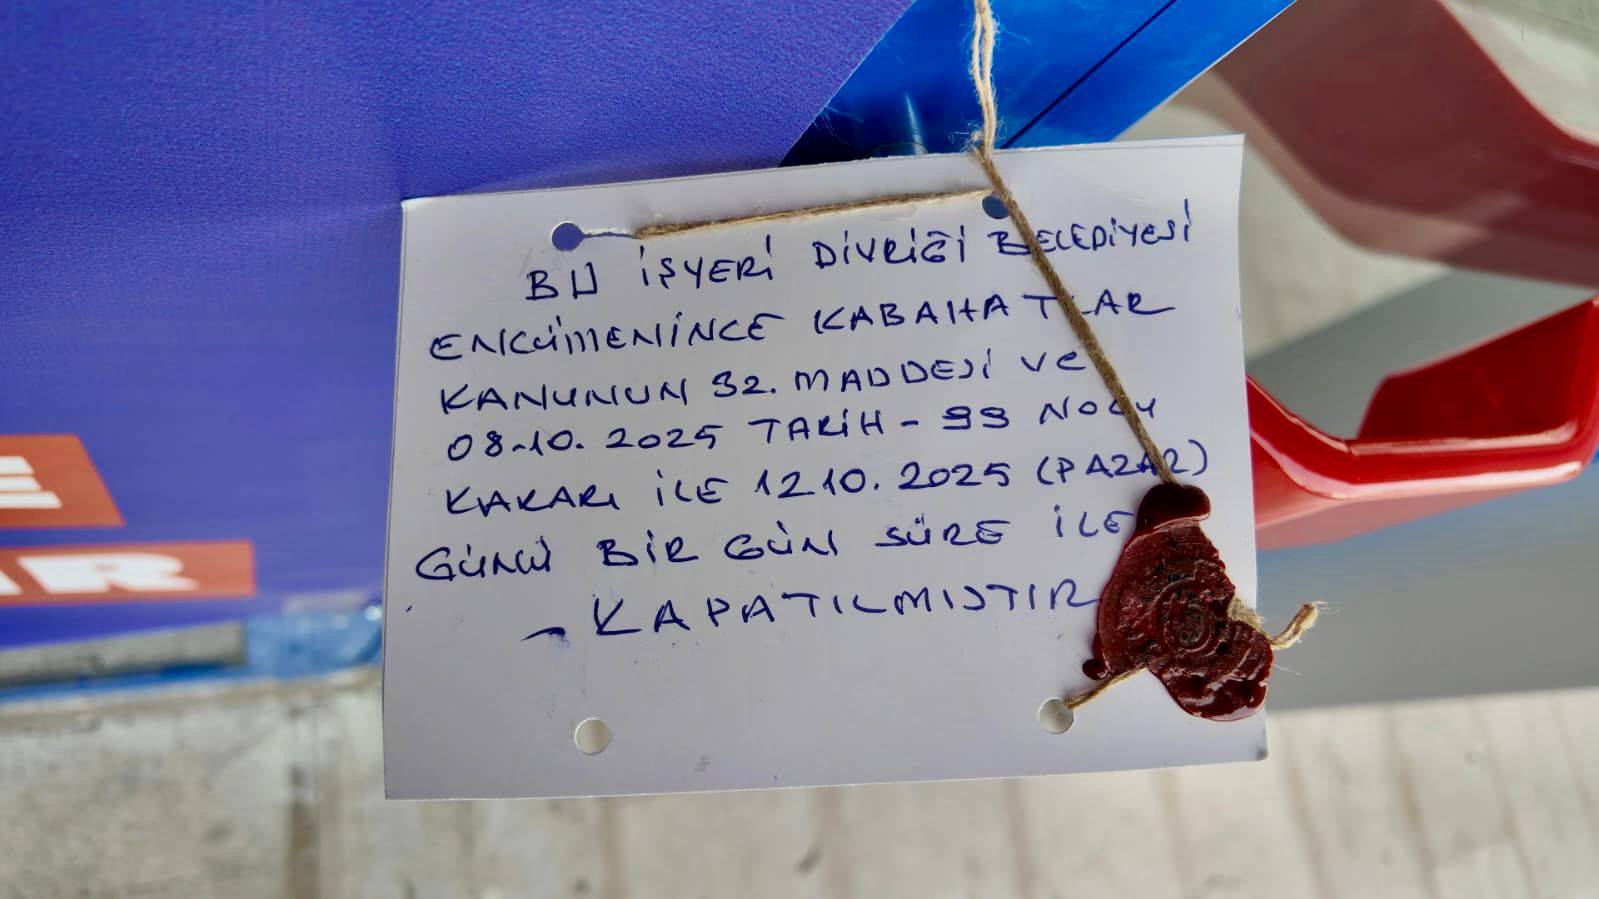 BU İŞYERİ DİVRİĞİ BELEDİYESİ
ENCÜMENİNCE KABAHATLAR
KANUNUN 32. MADDESİ VE
08.10.2025 TARİH - 99 NOLU
KARARI İLE 12.10.2025 (PAZAR)
GÜNÜ BİR GÜN SÜRE İLE
- KAPATILMIŞTIR
E
AR